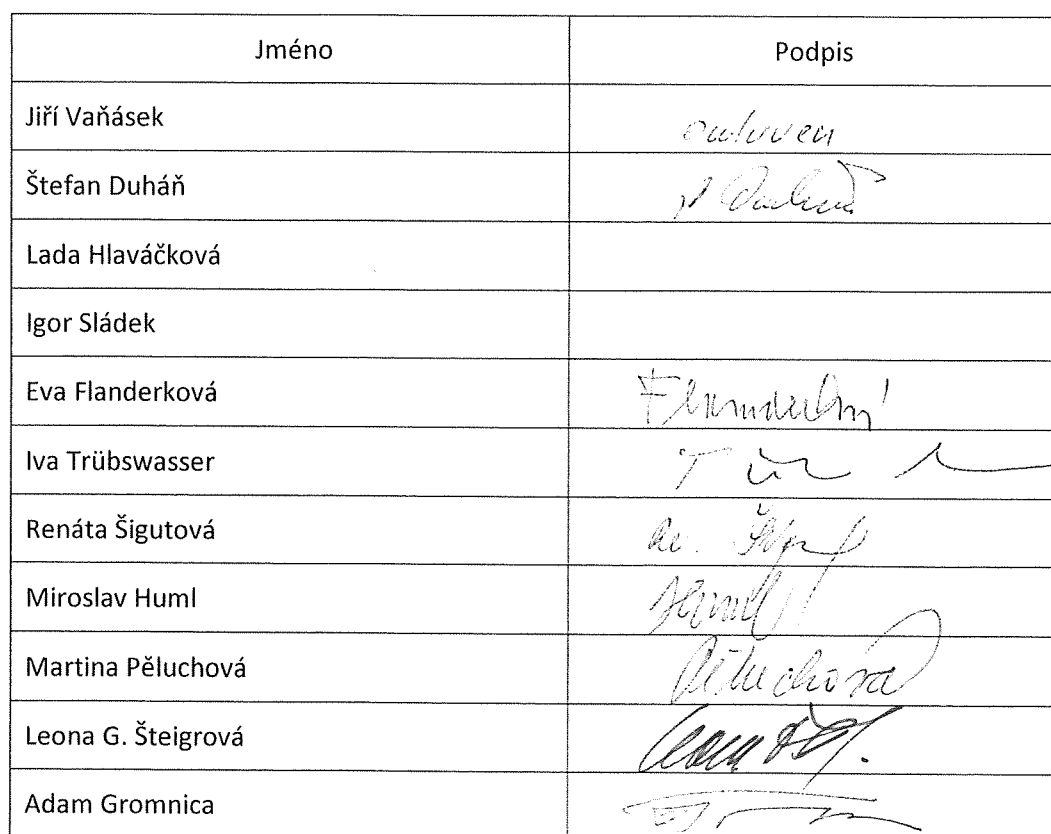 Jméno Podpis
Jiří Vaňásek omluven
Štefan Duháň
Lada Hlaváčková
Igor Sládek
Eva Flanderková
Iva Trübswasser
Renáta Šigutová
Miroslav Huml Huml
Martina Pěluchová Pěluchová
Leona G. Šteigrová
Adam Gromnica